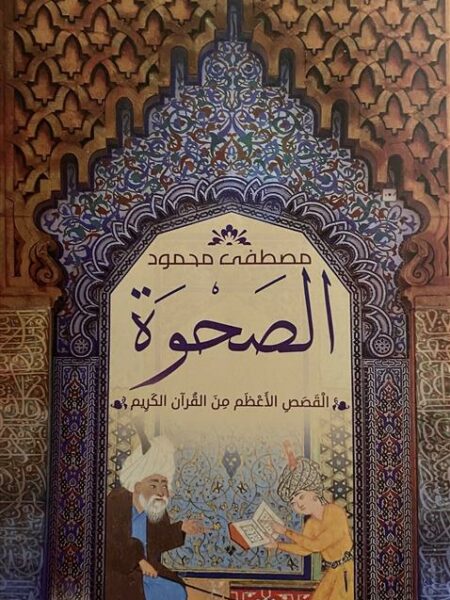 مصطفى محمود
الصَحوَة
القَصَصِ الأَعْظَم مِنَ القُرآن الكَرِيم